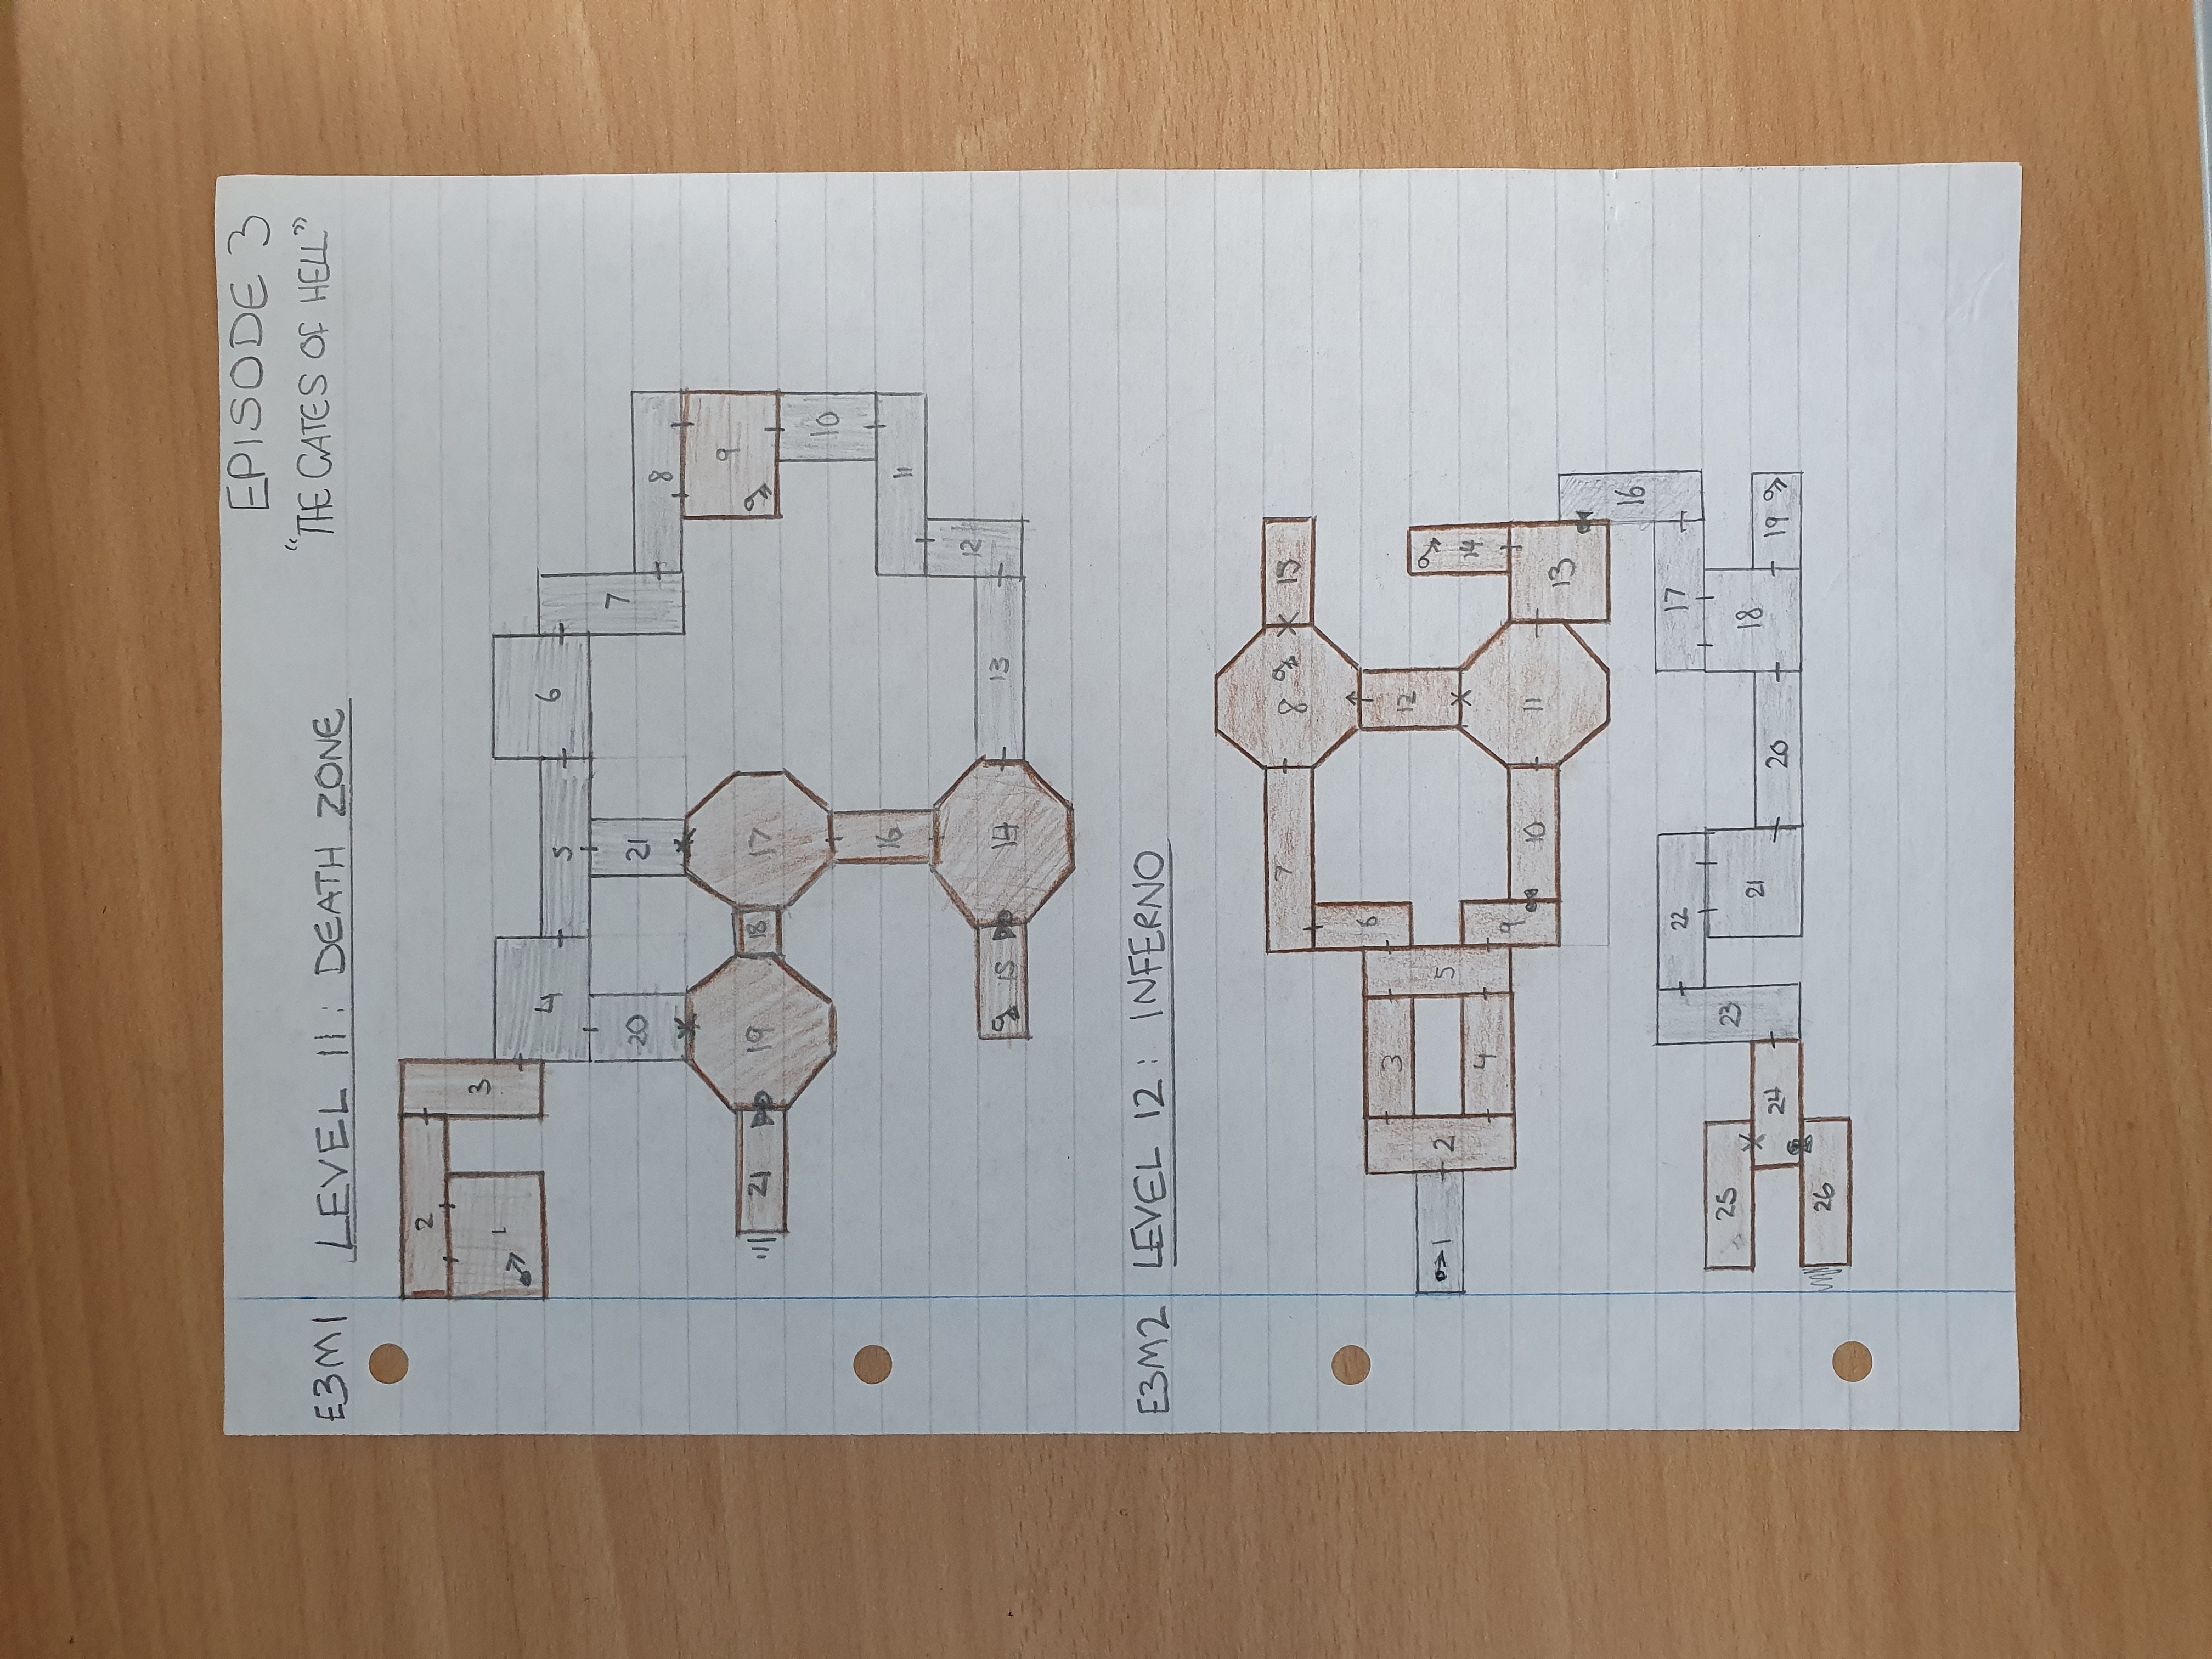 EPISODE 3
"THE GATES OF HELL"
E3M1 LEVEL 11: DEATH ZONE
2
3
1
4
5
6
7
20
21
8
9
21
19
18
17
10
16
11
12
15
14
13
E3M2 LEVEL 12: INFERNO
7
8
15
6
3
12
1
2
5
4
14
9
10
11
13
16
22
17
25
23
21
18
24
20
19
26